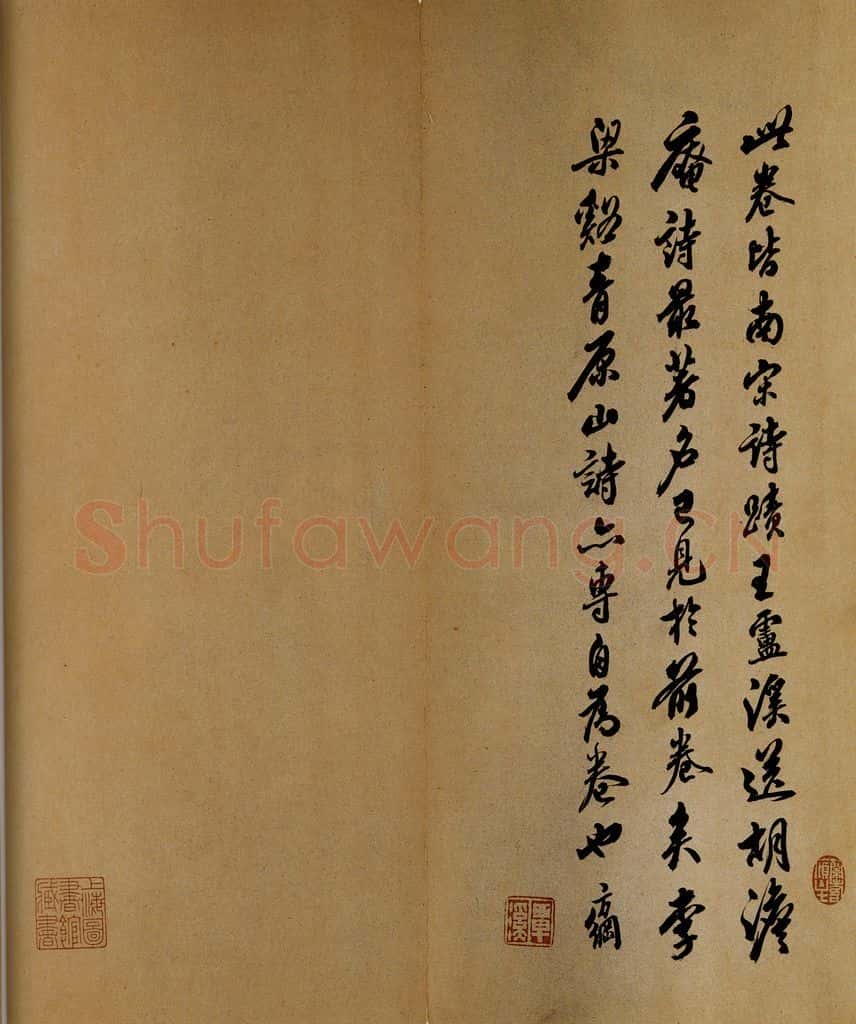 此卷皆南宋詩蹟王盧溪送胡澹
庵詩最著名已見於前卷矣李
梁谿青原山詩亦專自為卷也 方綱
覃溪
上海圖書館藏書
Shufawang.cn